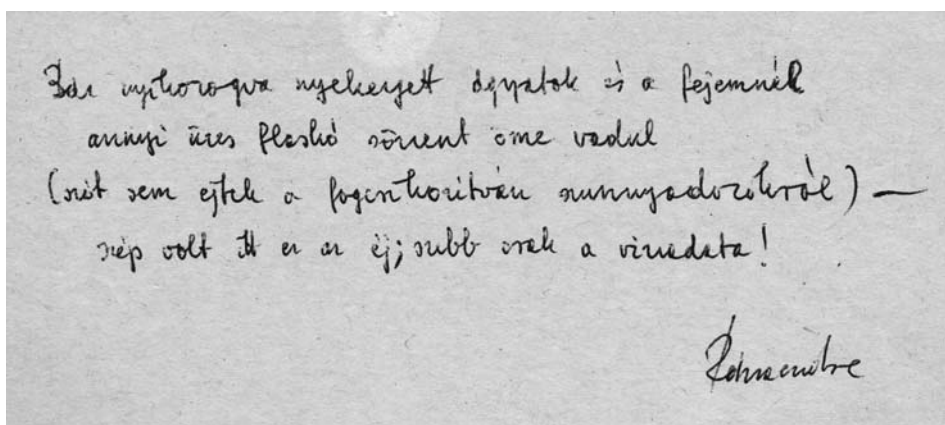 Bár nyikorogva nyekergett ágyatok és a fejemnél
annyi üres flaskó zörrent össze vadul
(szót sem ejtek a fogcsikorítván szunnyadozókról) —
szép volt itt ez az éj; szebb csak a virradata!
Rózsaendre